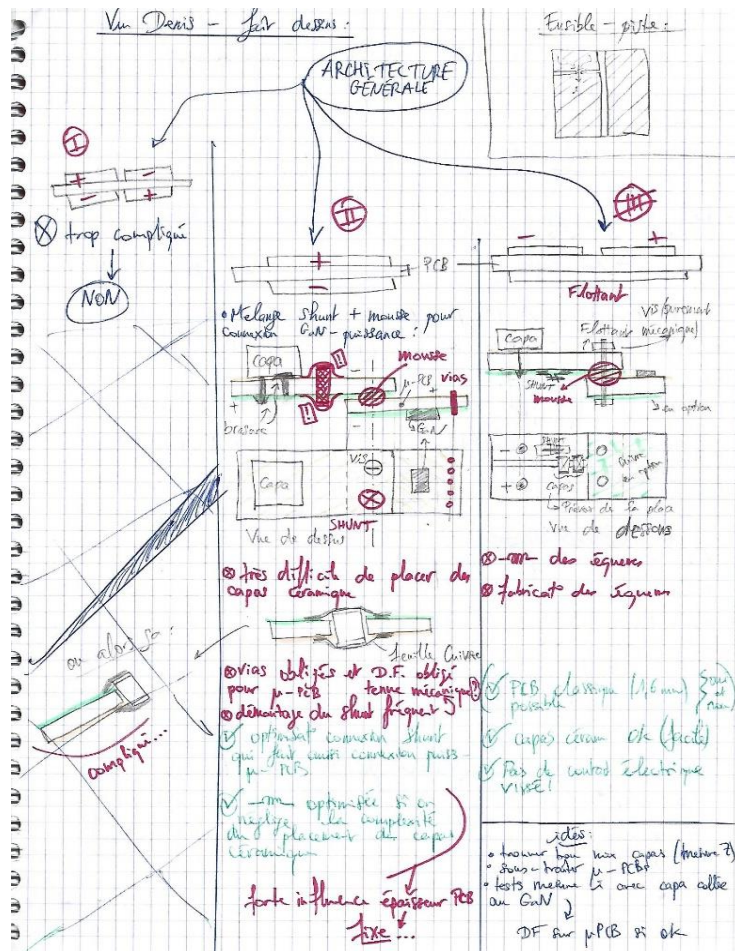 Vu Denis - fait dessus :
Fusible - piste :
ARCHITECTURE
GÉNÉRALE
I
+ -
- +
⊗ trop compliqué
NON
ou alors :
compliqué...
II
+
-
PCB
• Mélange shunt + mousse pour
connexion GaN - puissance :
capa
!!
-
mousse
μ-PCB
+
vias
+
brasure
!!
-
GaN
Capa
VIS
SHUNT
Vue de dessus
⊗ très difficile de placer des
capas céramique
feuille Cuivre
⊗ vias obligés et D.F. obligé
pour μ-PCB tenue mécanique(?)
⊗ démontage du shunt fréquent
✓ optimisat° connexion shunt
qui fait aussi connexion puiss-
μ-PCB
✓ optimisée si on
néglige la complexité
du placement des capas
céramique
forte influence épaisseur PCB
fixe...
III
- +
Flottant
vis (purement
mécanique)
Capa
Flottant
SHUNT
mousse
en option
- SHUNT
+ capas
Cuivre
en option
Prévoir de la place
Vue de DESSOUS
⊗ des équerres
⊗ fabricat° des équerres
✓ PCB classique (1,6 mm)
possible
oui
et
non
✓ capas céram ok (facile)
✓ Pas de contact électrique
VISSÉ !
idées :
• trouver trou mix capas (mesure Z)
• sous-traiter μ-PCBs
• tests mesure Li avec capa collée
au GaN
DF sur μPCB si ok